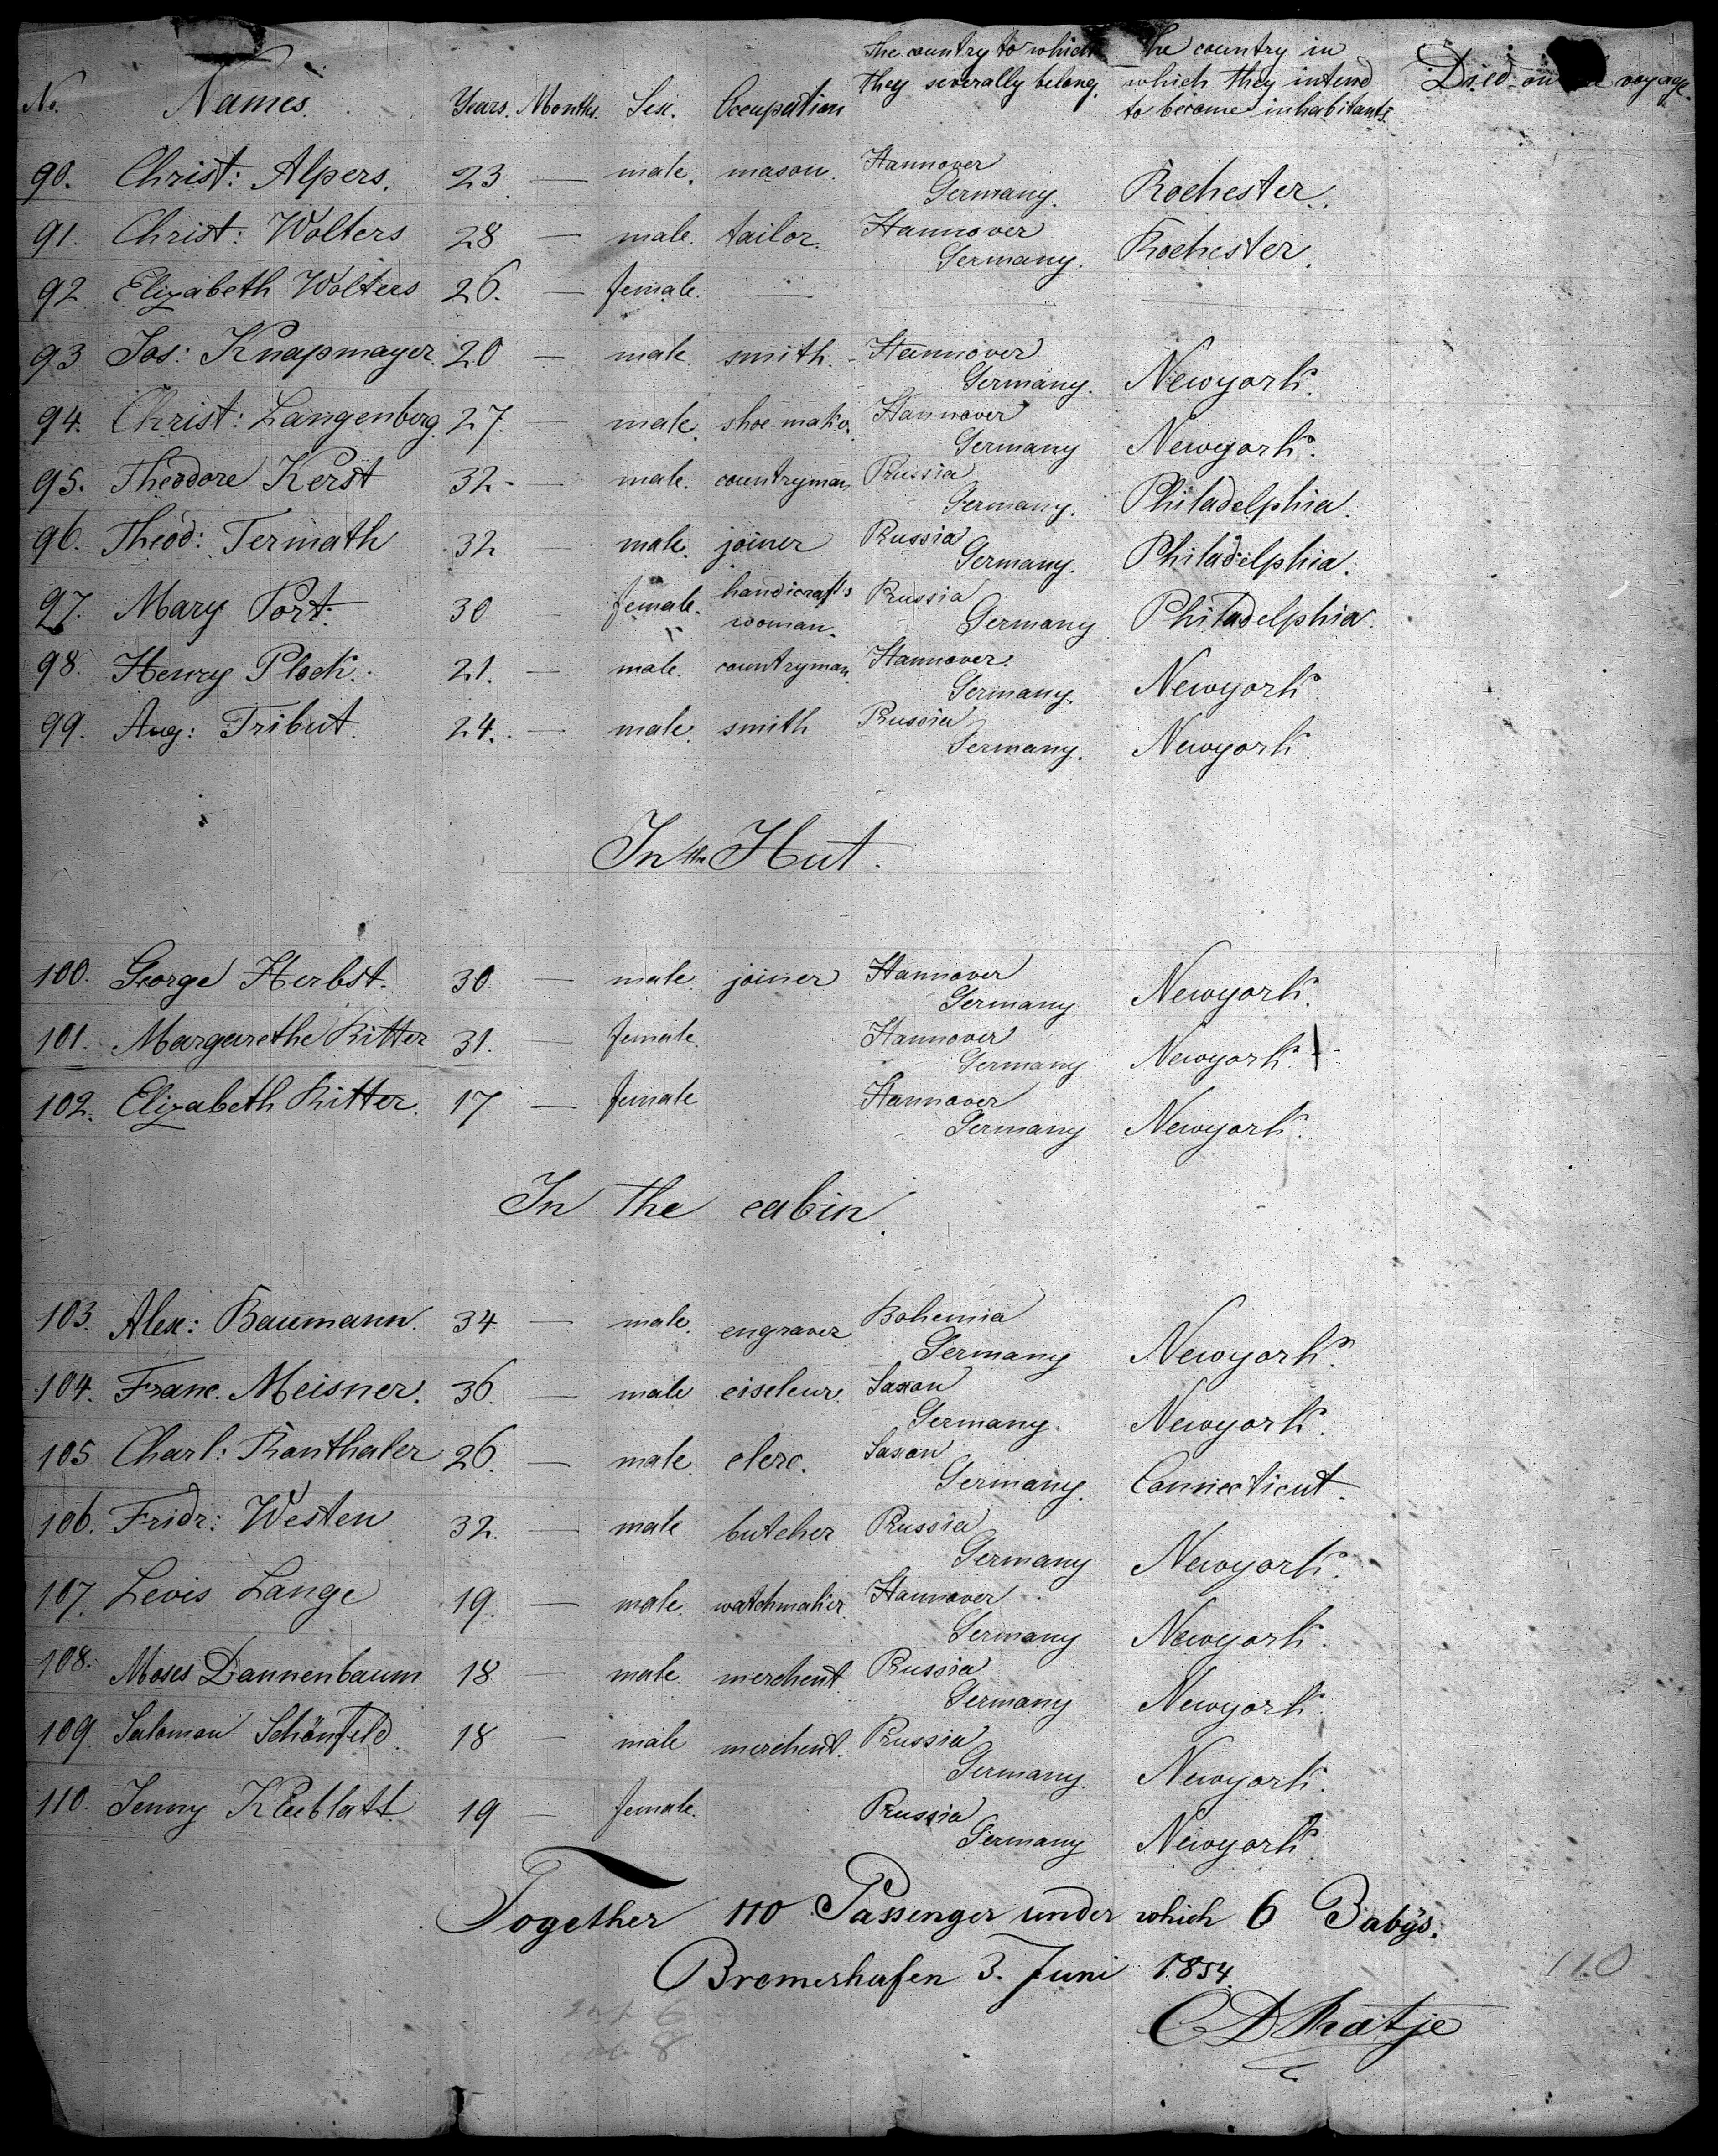 No. Names. Years. Months. Sex. Occupation The country to which they severally belong. The country in which they intend to become inhabitants. Died on voyage.
90. Christ: Alpers. 23 — male. mason. Hannover Germany. Rochester.
91. Christ: Wolters 28 — male. tailor. Hannover Germany. Rochester.
92 Elizabeth Wolters 26. — female. —
93 Jos: Knapmayer 20 — male smith. Hannover Germany. Newyork.
94. Christ: Langenberg. 27. — male. shoe-maker. Hannover Germany Newyork.
95. Theodore Kerst 32. — male. countryman, Prussia Germany. Philadelphia.
96. Theod: Termath 32 — male. joiner Prussia Germany. Philadelphia.
97. Mary Port. 30 female. handicraft's woman. Prussia Germany Philadelphia.
98. Henry Plock. 21. — male. countryman. Hannover. Germany. Newyork.
99. Aug: Tribut. 24. — male. smith Prussia Germany. Newyork.
In the Hut.
100. George Herbst. 30. — male. joiner Hannover Germany Newyork.
101. Margarethe Ritter 31. — female. Hannover Germany Newyork.
102. Elizabeth Ritter. 17 — female. Hannover Germany Newyork.
In the cabin.
103. Alex: Baumann. 34 — male. engraver Bohemia Germany Newyork.
104. Franc. Meisner. 36. — male ciseleur. Saxon Germany. Newyork.
105 Charl: Ronthaler 26. — male. clerc. Saxon Germany. Connecticut.
106. Fridr: Westen 32. — male butcher Prussia Germany Newyork.
107. Levis Lange 19. — male. watchmaker. Hannover Germany Newyork.
108. Moses Dannenbaum 18 — male. merchent. Prussia Germany Newyork.
109. Salomon Schönfeld. 18 — male merchent. Prussia Germany. Newyork.
110. Jenny Kleeblatt. 19 — female. Prussia Germany Newyork
Together 110 Passenger under which 6 Babys.
Bremerhafen 3. Juni 1854.
110
C D Ratje
6
8